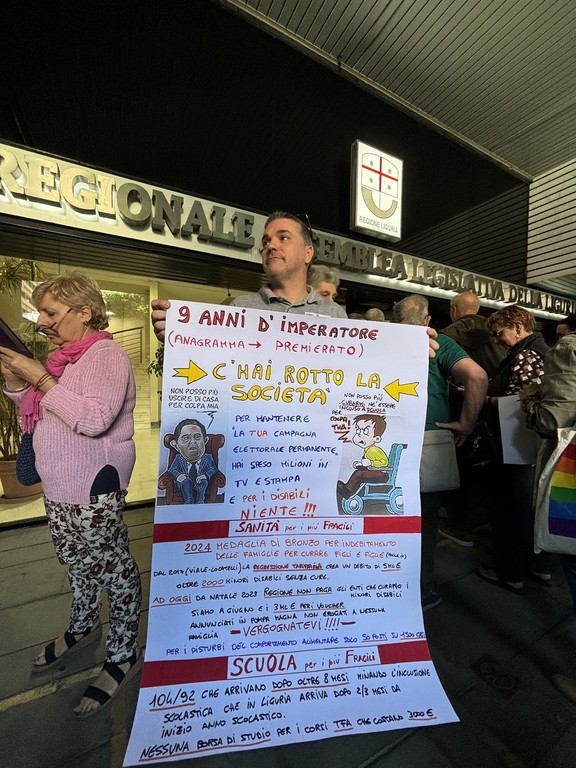 REGIONALE ASSEMBLEA LEGISLATIVA DELLA LIGURIA
REGIONE LIGURIA
9 ANNI D'IMPERATORE
(ANAGRAMMA → PREMIERATO)
C'HAI ROTTO LA
SOCIETA'
NON POSSO PIÙ
USCIRE DI CASA
PER COLPA MIA
NON POSSO PIÙ
CURARMI NE' ESSERE
INCLUSO A SCUOLA
PER COLPA
TUA!
PER MANTENERE
"LA TUA CAMPAGNA
ELETTORALE PERMANENTE"
HAI SPESO MILIONI IN
TV E STAMPA
E PER I DISABILI
NIENTE !!!
SANITÀ PER I PIÙ FRAGILI
2024 MEDAGLIA DI BRONZO PER INDEBITAMENTO
DELLE FAMIGLIE PER CURARE FIGLI E FIGLIE
DAL 2017 (VIALE-LOCATELLI) LA REGRESSIONE TARIFFARIA CREA UN DEBITO DI 5ML€
OLTRE 2000 MINORI DISABILI SENZA CURE.
AD OGGI DA NATALE 2023 REGIONE NON PAGA GLI ENTI CHE CURANO I
MINORI DISABILI
SIAMO A GIUGNO E I 3ML€ PER I VOUCHER
ANNUNCIATI IN POMPA MAGNA NON EROGATI A NESSUNA
FAMIGLIA - VERGOGNATEVI !!!! -
PER I DISTURBI DEL COMPORTAMENTO ALIMENTARE SOLO 50 POSTI IN
SCUOLA PER I PIÙ FRAGILI
104/92 CHE ARRIVANO DOPO OLTRE 8 MESI MINANDO L'INCLUSIONE
SCOLASTICA CHE IN LIGURIA ARRIVA DOPO 2/3 MESI DA
INIZIO ANNO SCOLASTICO.
NESSUNA BORSA DI STUDIO PER I CORSI TFA CHE COSTANO 3000 €